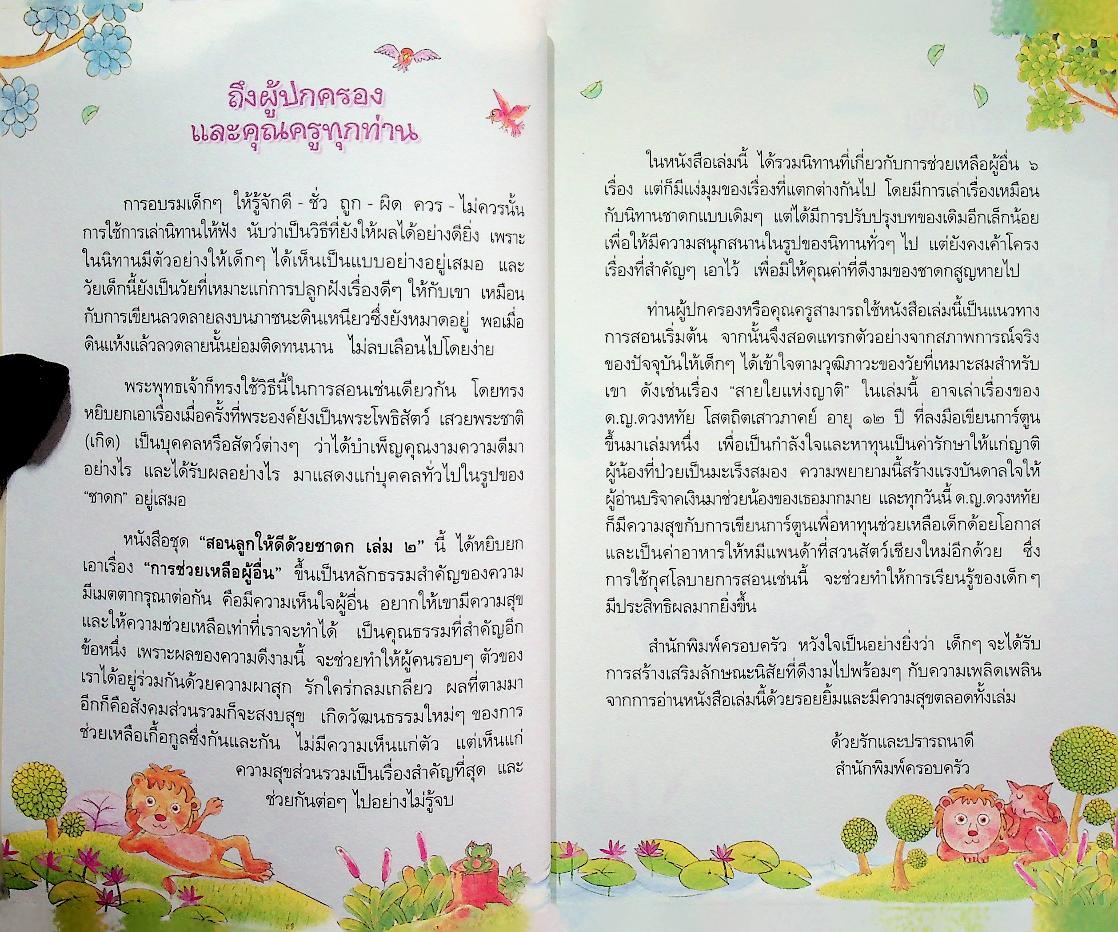 ถึงผู้ปกครอง
และคุณครูทุกท่าน
การอบรมเด็กๆ ให้รู้จักดี - ชั่ว ถูก - ผิด ควร - ไม่ควรนั้น
การใช้การเล่านิทานให้ฟัง นับว่าเป็นวิธีที่ยังให้ผลได้อย่างดียิ่ง เพราะ
ในนิทานมีตัวอย่างให้เด็กๆ ได้เห็นเป็นแบบอย่างอยู่เสมอ และ
วัยเด็กนี้ยังเป็นวัยที่เหมาะแก่การปลูกฝังเรื่องดีๆ ให้กับเขา เหมือน
กับการเขียนลวดลายลงบนภาชนะดินเหนียวซึ่งยังหมาดอยู่ พอเมื่อ
ดินแห้งแล้วลวดลายนั้นย่อมติดทนนาน ไม่ลบเลือนไปโดยง่าย
พระพุทธเจ้าก็ทรงใช้วิธีนี้ในการสอนเช่นเดียวกัน โดยทรง
หยิบยกเอาเรื่องเมื่อครั้งที่พระองค์ยังเป็นพระโพธิสัตว์ เสวยพระชาติ
(เกิด) เป็นบุคคลหรือสัตว์ต่างๆ ว่าได้บำเพ็ญคุณงามความดีมา
อย่างไร และได้รับผลอย่างไร มาแสดงแก่บุคคลทั่วไปในรูปของ
“ชาดก” อยู่เสมอ
หนังสือชุด “สอนลูกให้ดีด้วยชาดก เล่ม ๒” นี้ ได้หยิบยก
เอาเรื่อง “การช่วยเหลือผู้อื่น” ขึ้นเป็นหลักธรรมสำคัญของความ
มีเมตตากรุณาต่อกัน คือมีความเห็นใจผู้อื่น อยากให้เขามีความสุข
และให้ความช่วยเหลือเท่าที่เราจะทำได้ เป็นคุณธรรมที่สำคัญอีก
ข้อหนึ่ง เพราะผลของความดีงามนี้ จะช่วยทำให้ผู้คนรอบๆ ตัวของ
เราได้อยู่ร่วมกันด้วยความผาสุก รักใคร่กลมเกลียว ผลที่ตามมา
อีกก็คือสังคมส่วนรวมก็จะสงบสุข เกิดวัฒนธรรมใหม่ๆ ของการ
ช่วยเหลือเกื้อกูลซึ่งกันและกัน ไม่มีความเห็นแก่ตัว แต่เห็นแก่
ความสุขส่วนรวมเป็นเรื่องสำคัญที่สุด และ
ช่วยกันต่อๆ ไปอย่างไม่รู้จบ
ในหนังสือเล่มนี้ ได้รวมนิทานที่เกี่ยวกับการช่วยเหลือผู้อื่น ๖
เรื่อง แต่ก็มีแง่มุมของเรื่องที่แตกต่างกันไป โดยมีการเล่าเรื่องเหมือน
กับนิทานชาดกแบบเดิมๆ แต่ได้มีการปรับปรุงบทของเดิมอีกเล็กน้อย
เพื่อให้มีความสนุกสนานในรูปของนิทานทั่วๆ ไป แต่ยังคงเค้าโครง
เรื่องที่สำคัญๆ เอาไว้ เพื่อมิให้คุณค่าที่ดีงามของชาดกสูญหายไป
ท่านผู้ปกครองหรือคุณครูสามารถใช้หนังสือเล่มนี้เป็นแนวทาง
การสอนเริ่มต้น จากนั้นจึงสอดแทรกตัวอย่างจากสภาพการณ์จริง
ของปัจจุบันให้เด็กๆ ได้เข้าใจตามวุฒิภาวะของวัยที่เหมาะสมสำหรับ
เขา ดังเช่นเรื่อง “สายใยแห่งญาติ” ในเล่มนี้ อาจเล่าเรื่องของ
ด.ญ.ดวงหทัย โสตถิตเสาวภาคย์ อายุ ๑๒ ปี ที่ลงมือเขียนการ์ตูน
ขึ้นมาเล่มหนึ่ง เพื่อเป็นกำลังใจและหาทุนเป็นค่ารักษาให้แก่ญาติ
ผู้น้องที่ป่วยเป็นมะเร็งสมอง ความพยายามนี้สร้างแรงบันดาลใจให้
ผู้อ่านบริจาคเงินมาช่วยน้องของเธอมากมาย และทุกวันนี้ ด.ญ.ดวงหทัย
ก็มีความสุขกับการเขียนการ์ตูนเพื่อหาทุนช่วยเหลือเด็กด้อยโอกาส
และเป็นค่าอาหารให้หมีแพนด้าที่สวนสัตว์เชียงใหม่อีกด้วย ซึ่ง
การใช้กุศโลบายการสอนเช่นนี้ จะช่วยทำให้การเรียนรู้ของเด็กๆ
มีประสิทธิผลมากยิ่งขึ้น
สำนักพิมพ์ครอบครัว หวังใจเป็นอย่างยิ่งว่า เด็กๆ จะได้รับ
การสร้างเสริมลักษณะนิสัยที่ดีงามไปพร้อมๆ กับความเพลิดเพลิน
จากการอ่านหนังสือเล่มนี้ด้วยรอยยิ้มและมีความสุขตลอดทั้งเล่ม
ด้วยรักและปรารถนาดี
สำนักพิมพ์ครอบครัว